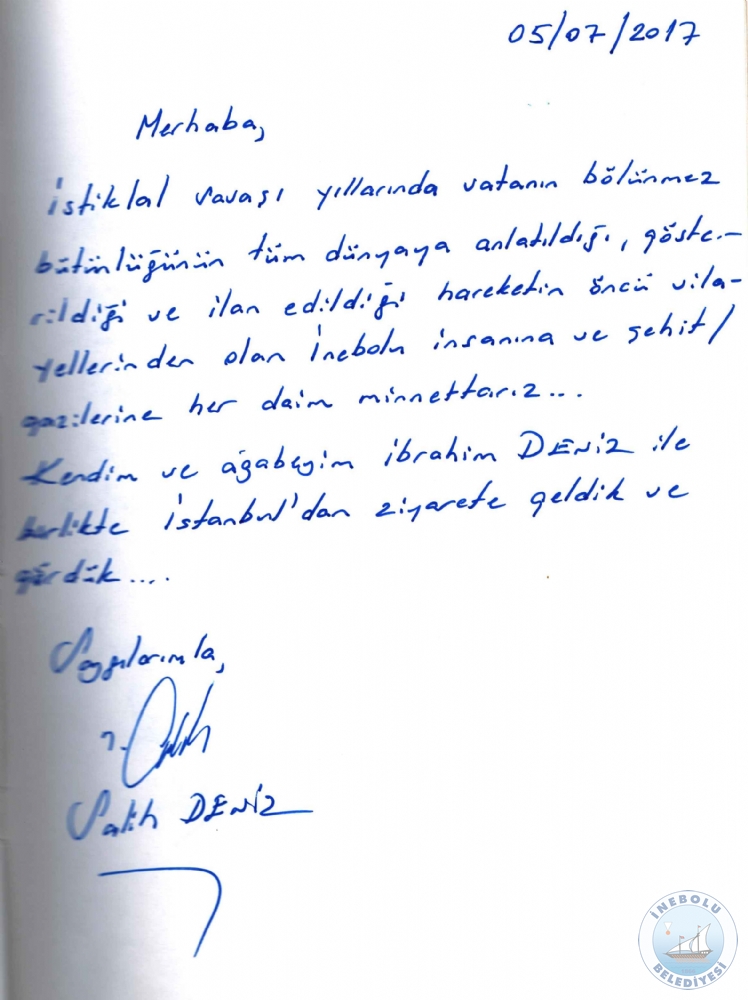 05/07/2017
Merhaba,
İstiklal savaşı yıllarında vatanın bölünmez
bütünlüğünün tüm dünyaya anlatıldığı, göste-
rildiği ve ilan edildiği hareketin öncü vila-
yellerinden olan İnebolu insanına ve şehit/
gazilerine her daim minnettarız...
Kendim ve ağabeyim İbrahim DENİZ ile
birlikte İstanbul'dan ziyarete geldik ve
gördük....
Saygılarımla,
Salih DENİZ
İNEBOLU
BELEDİYESİ